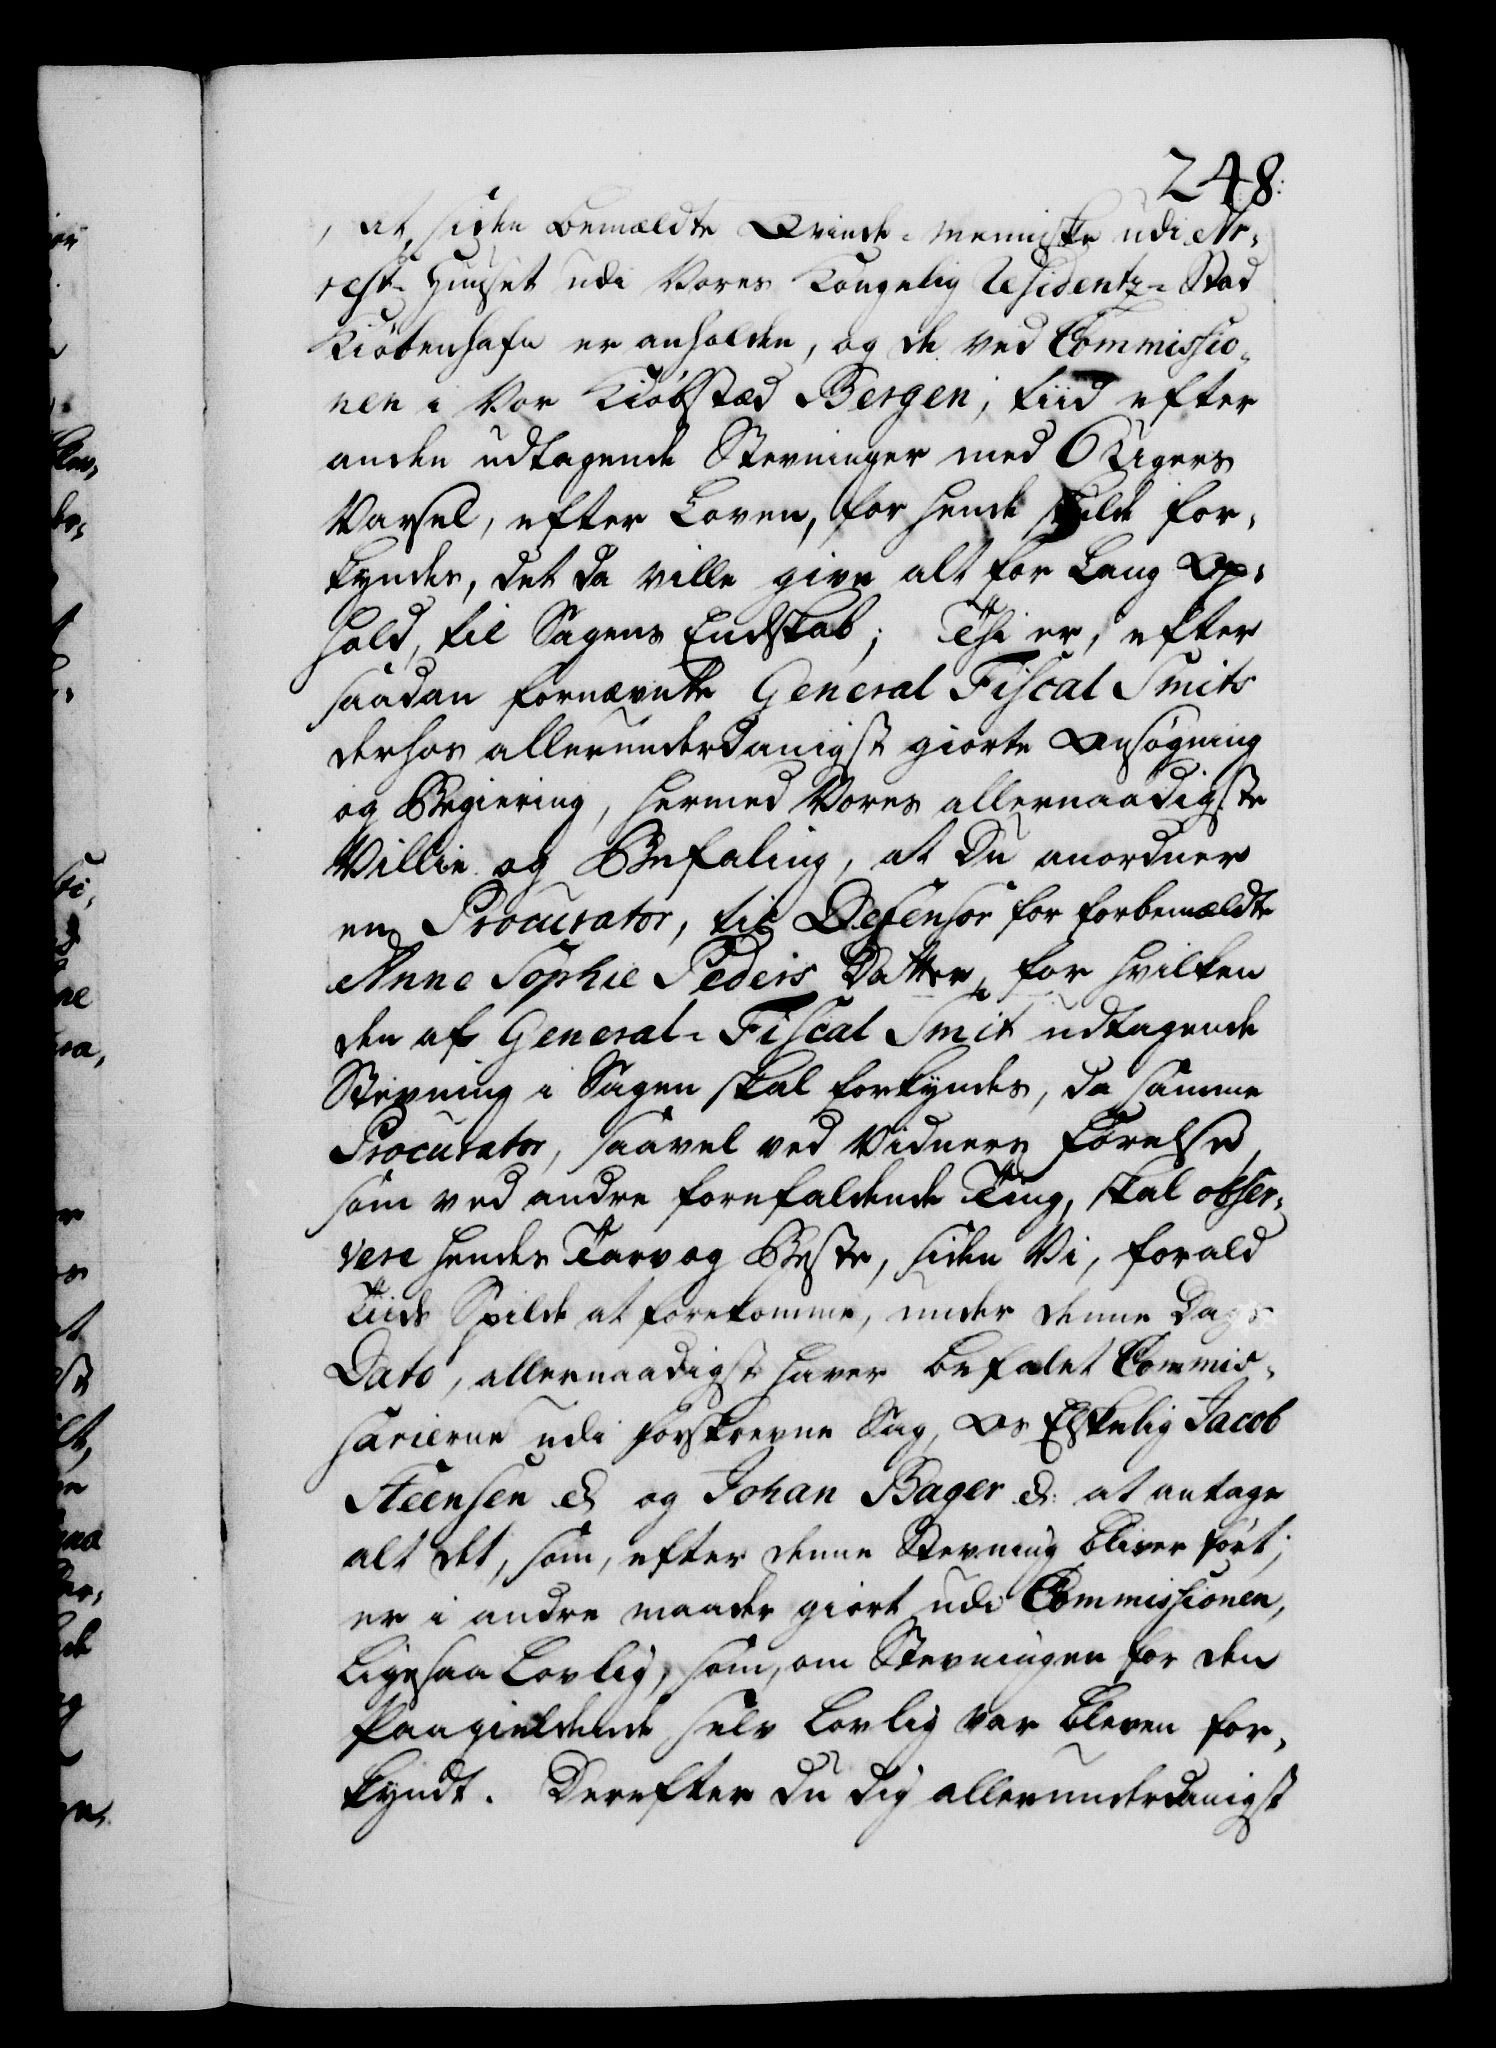 248:
, at, siden bemældte Qvinde-Menniske udi Ar-
rest-Huuset udi Vores Kongelig Residentz-Stad
Kiöbenhafn er anholden, og de ved Commissio-
nen i Vor Kiöbstæd Bergen, tiid efter
anden udtagende Stevninger med 6 Ugers
Varsel, efter Loven, for hende skulde for-
kyndes, det da ville give alt for Lang Op-
hold, til Sagens Endskab; Thi er, efter
saadan fornævnte General Fiscal Smits
derhos allerunderdanigst giorte Ansøgning
og Begiering, hermed Vores allernaadigste
Villie og Befaling, at Du anordner
en Procurator, til Defensor for forbemældte
Anne Sophie Peders Datter, for hvilken
den af General-Fiscal Smit udtagende
Stevning i Sagen skal forkyndes, da samme
Procurator, saavel ved Vidners Førelse,
som ved andre forefaldende Ting, skal obser-
vere hendes Tarv og Beste, siden Vi, for ald
Tiids Spilde at forekomme, under denne Dags
Dato, allernaadigst haver befalet Commis-
sarierne udi forskrevne Sag, Os Elskelig Jacob
Steensen &. og Johan Bager &. at antage
alt det, som, efter denne Stevning bliver ført;
er i andre maader giort udi Commissionen,
Ligesaa Lovlig, som, om Stevningen for den
Paagieldende selv Lovlig var bleven for-
kyndt. Derefter Du dig allerunderdanigst